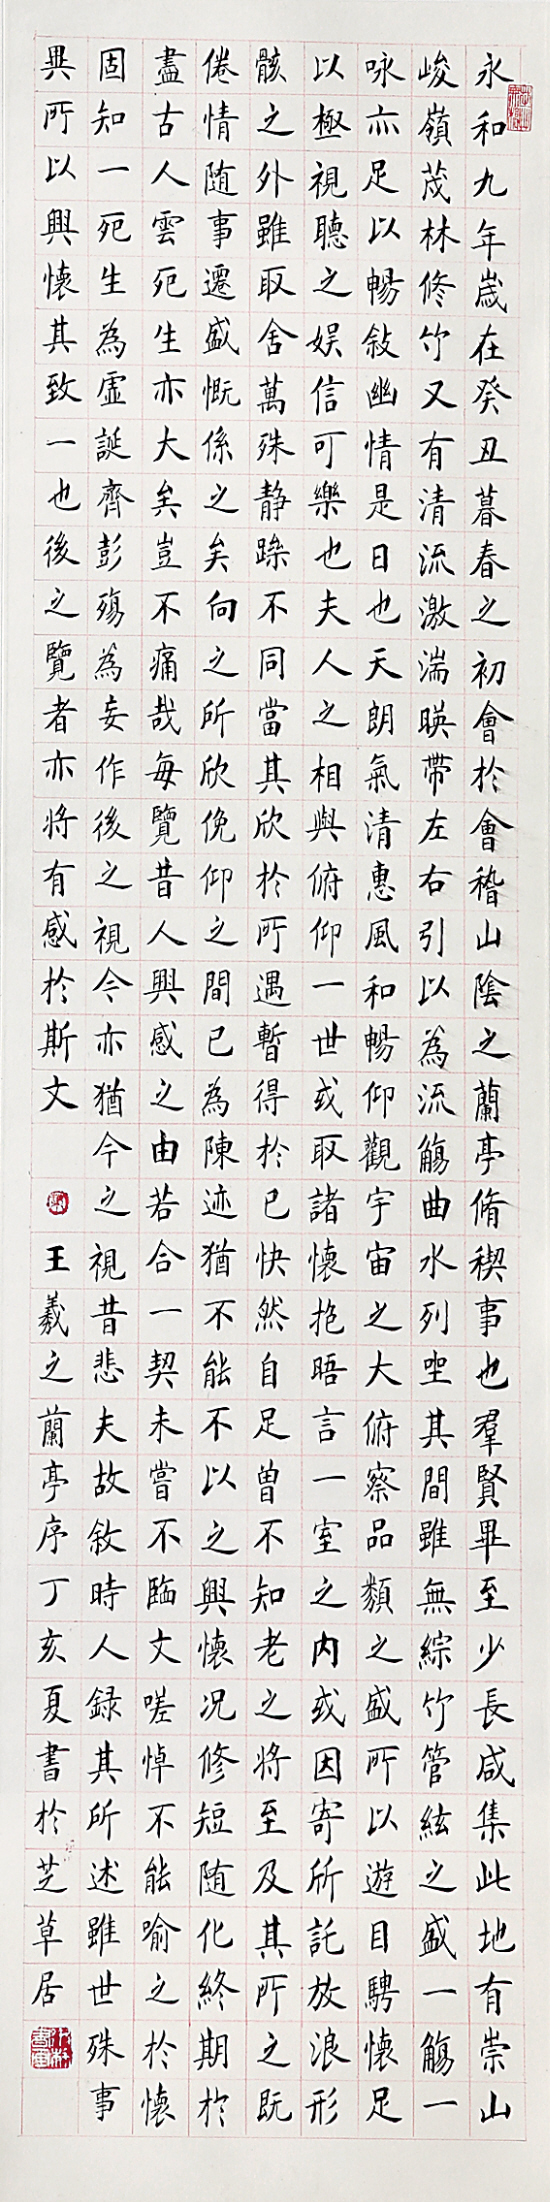 永和九年歲在癸丑暮春之初會於會稽山陰之蘭亭脩稧事也羣賢畢至少長咸集此地有崇山
峻嶺茂林修竹又有清流激湍暎帶左右引以為流觴曲水列坐其間雖無綜竹管絃之盛一觴一
咏亦足以暢敍幽情是日也天朗氣清惠風和暢仰觀宇宙之大俯察品類之盛所以遊目騁懷足
以極視聽之娛信可樂也夫人之相與俯仰一世或取諸懷抱晤言一室之内或因寄所託放浪形
骸之外雖取舍萬殊静躁不同當其欣於所遇暫得於已快然自足曾不知老之将至及其所之既
倦情随事遷盛慨係之矣向之所欣俛仰之間已為陳迹猶不能不以之興懷况修短随化終期於
盡古人雲死生亦大矣豈不痛哉每覽昔人興感之由若合一契未嘗不臨文嗟悼不能喻之於懷
固知一死生為虛誕齊彭殤為妄作後之視今亦猶今之視昔悲夫故敘時人録其所述雖世殊事
異所以興懷其致一也後之覽者亦将有感於斯文 王羲之蘭亭序丁亥夏書於芝草居